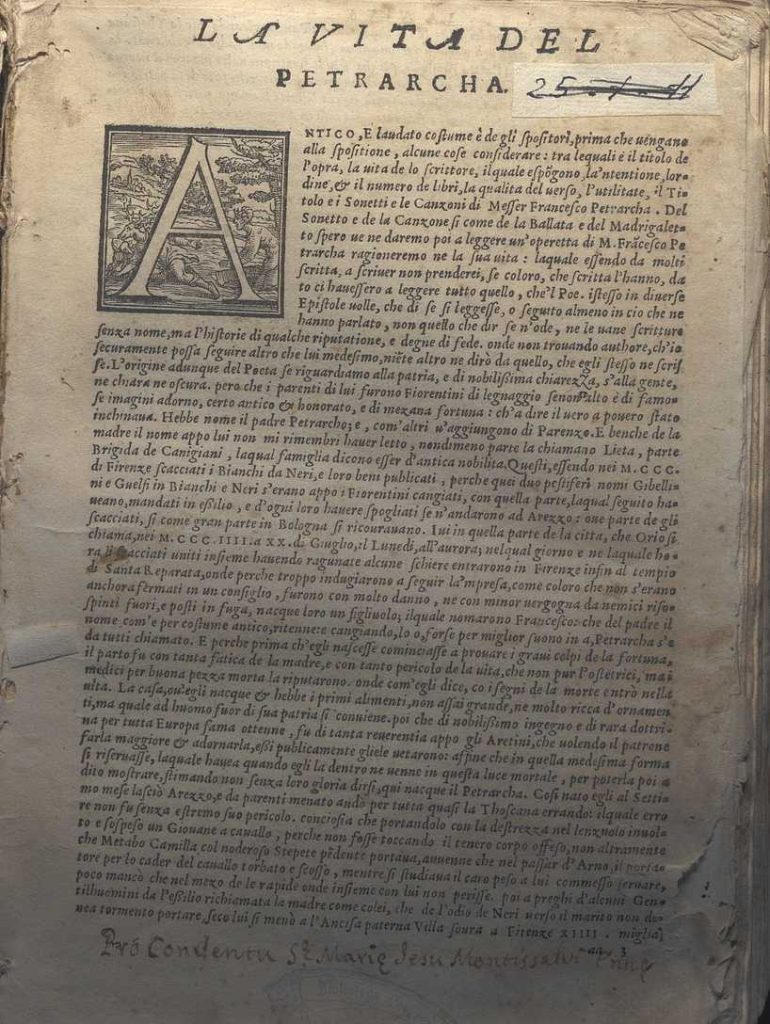 LA VITA DEL
PETRARCHA.
25
ANTICO, E laudato costume è de gli spositori, prima che uengano
alla spositione, alcune cose considerare: tra lequali è il titolo de
l'opra, la uita de lo scrittore, il quale espōgono, la'ntentione, lor-
dine, & il numero de libri, la qualita del uerso, l'utilitate, il Ti-
tolo e i Sonetti e le Canzoni di Messer Francesco Petrarcha. Del
Sonetto e de la Canzone si come de la Ballata e del Madrigalet-
to spero ue ne daremo poi a leggere un'operetta di M. Frācesco Pe
trarcha ragioneremo ne la sua uita: laquale essendo da molti
scritta, a scriuer non prenderei, se coloro, che scritta l'hanno, da
to ci hauessero a leggere tutto quello, che'l Poe. istesso in diuerse
Epistole uolle, che di se si leggesse, o seguito almeno in cio che ne
hanno parlato, non quello che dir se n'ode, ne le uane scritture
senza nome, ma l'historie di qualche riputatione, e degne di fede. onde non trouando authore, ch'io
securamente possa seguire altro che lui medesimo, niēte altro ne dirò da quello, che egli stesso ne scris
se. L'origine adunque del Poeta se riguardiamo alla patria, e di nobilissima chiarezza, s'alla gente,
ne chiara ne oscura. pero che i parenti di lui furono Fiorentini di legnaggio senon alto è di famo-
se imagini adorno, certo antico & honorato, e di mezana fortuna: ch'a dire il uero a pouero stato
inchinaua. Hebbe nome il padre Petrarcho; e, com'altri u'aggiungono di Parenzo. E benche de la
madre il nome appo lui non mi rimembri hauer letto, nondimeno parte la chiamano Lieta, parte
Brigida de Canigiani, laqual famiglia dicono esser d'antica nobilita. Questi, essendo nei M. CCC.
di Firenze scacciati i Bianchi da Neri, e loro beni publicati, perche quei duo pestiferi nomi Gibelli-
ni e Guelfi in Bianchi e Neri s'erano appo i Fiorentini cangiati, con quella parte, laqual seguito ha-
ueano, mandati in essilio, e d'ogni loro hauere spogliati se n'andarono ad Arezzo: oue parte de gli
scacciati, si come gran parte in Bologna si ricourauano. Iui in quella parte de la citta, che Orio si
chiama, nei M. CCC. IIII. a XX. di Giugno, il Lunedi, all'aurora; nelqual giorno e ne laquale ho-
ra li scacciati uniti insieme hauendo ragunate alcune schiere entrarono in Firenze infin al tempio
di Santa Reparata, onde perche troppo indugiarono a seguir la'mpresa, come coloro che non s'erano
anchora fermati in un consiglio, furono con molto danno, ne con minor uergogna da nemici riso-
spinti fuori, e posti in fuga, nacque loro un figliuolo; ilquale nomarono Francesco: che del padre il
nome com'e per costume antico, ritenne: e cangiando, lo o, forse per miglior suono in a, Petrarcha s'è
da tutti chiamato. E perche prima ch'egli nascesse cominciasse a prouare i graui colpi de la fortuna,
il parto fu con tanta fatica de la madre, e con tanto pericolo de la uita, che non pur l'ostetrici, ma i
medici per buona pezza morta la riputarono. onde com'egli dice, co i segni de la morte entrò nella
uita. La casa, ou'egli nacque & hebbe i primi alimenti, non assai grande, ne molto ricca d'ornamen
ti, ma quale ad huomo fuor di sua patria si conuiene. poi che di nobilissimo ingegno e di rara dottri-
na per tutta Europa fama ottenne, fu di tanta reuerentia appo gli Aretini, che uolendo il patrone
farla maggiore & adornarla, essi publicamente gliele uetarono: affine che in quella medesima forma
si riseruasse, laquale hauea quando egli la dentro ne uenne in questa luce mortale, per poterla poi a
dito mostrare, stimando non senza loro gloria dirsi, qui nacque il Petrarcha. Cosi nato egli al Setti-
mo mese lasciò Arezzo, e da parenti menato andò per tutta quasi la Thoscana errando: ilquale erro
re non fu senza estremo suo pericolo. conciosia che portandolo con la destrezza nel lenzuolo inuol-
to e sospeso un Giouane a cauallo, perche non fosse toccando il tenero corpo offeso, non altramente
che Metabo Camilla col noderoso Stepete pēdente portaua, auuenne che nel passar d'Arno, il porta-
tore per lo cader del cauallo torbato e scosso, mentre si studiaua il caro peso a lui commesso seruare,
poco mancò che nel mezo de le rapide onde insieme con lui non perisse. poi a preghi d'alcuni Gen-
tilhuomini da l'essilio richiamata la madre come colei, che de l'odio de Neri uerso il marito non do-
uea tormento portare, seco lui si menò a l'Ancisa paterna Villa soura a Firenze XIIII. miglia;
3
Pró Conuentu Sᵗᵉ Marię Iesu Montissalui